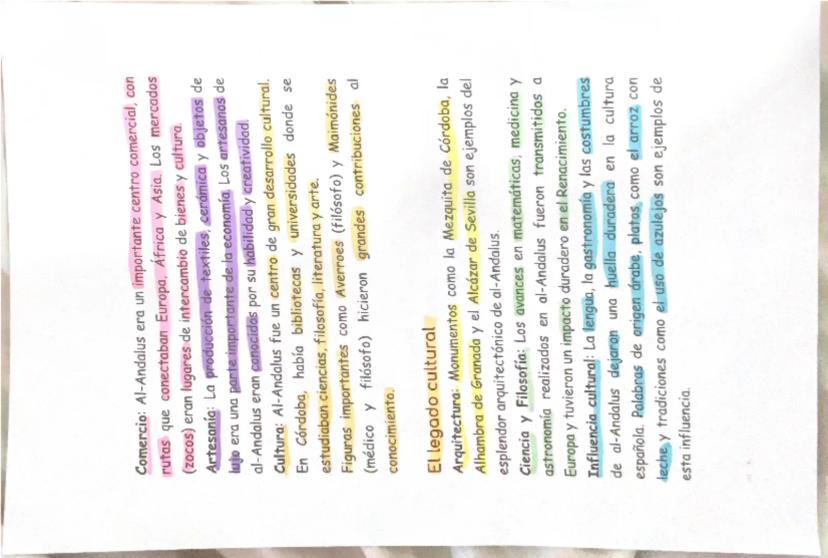 Comercio: Al-Andalus era un importante centro comercial, con
rutas que conectaban Europa, África y Asia. Los mercados
(zocos) eran lugares de intercambio de bienes y cultura.
Artesanía: La producción de textiles, cerámica y objetos de
lujo era una parte importante de la economía. Los artesanos de
al-Andalus eran conocidos por su habilidad y creatividad.
Cultura: Al-Andalus fue un centro de gran desarrollo cultural.
En Córdoba, había bibliotecas y universidades donde se
estudiaban ciencias, filosofía, literatura y arte.
Figuras importantes como Averroes (filósofo) y Maimónides
(médico y filósofo) hicieron grandes contribuciones al
conocimiento.
El legado cultural
Arquitectura: Monumentos como la Mezquita de Córdoba, la
Alhambra de Granada y el Alcázar de Sevilla son ejemplos del
esplendor arquitectónico de al-Andalus.
Ciencia y Filosofía: Los avances en matemáticas, medicina y
astronomía realizados en al-Andalus fueron transmitidos a
Europa y tuvieron un impacto duradero en el Renacimiento.
Influencia cultural: La lengua, la gastronomía y las costumbres
de al-Andalus dejaron una huella duradera en la cultura
española. Palabras de origen árabe, platos como el arroz con
leche y tradiciones como el uso de azulejos son ejemplos de
esta influencia.